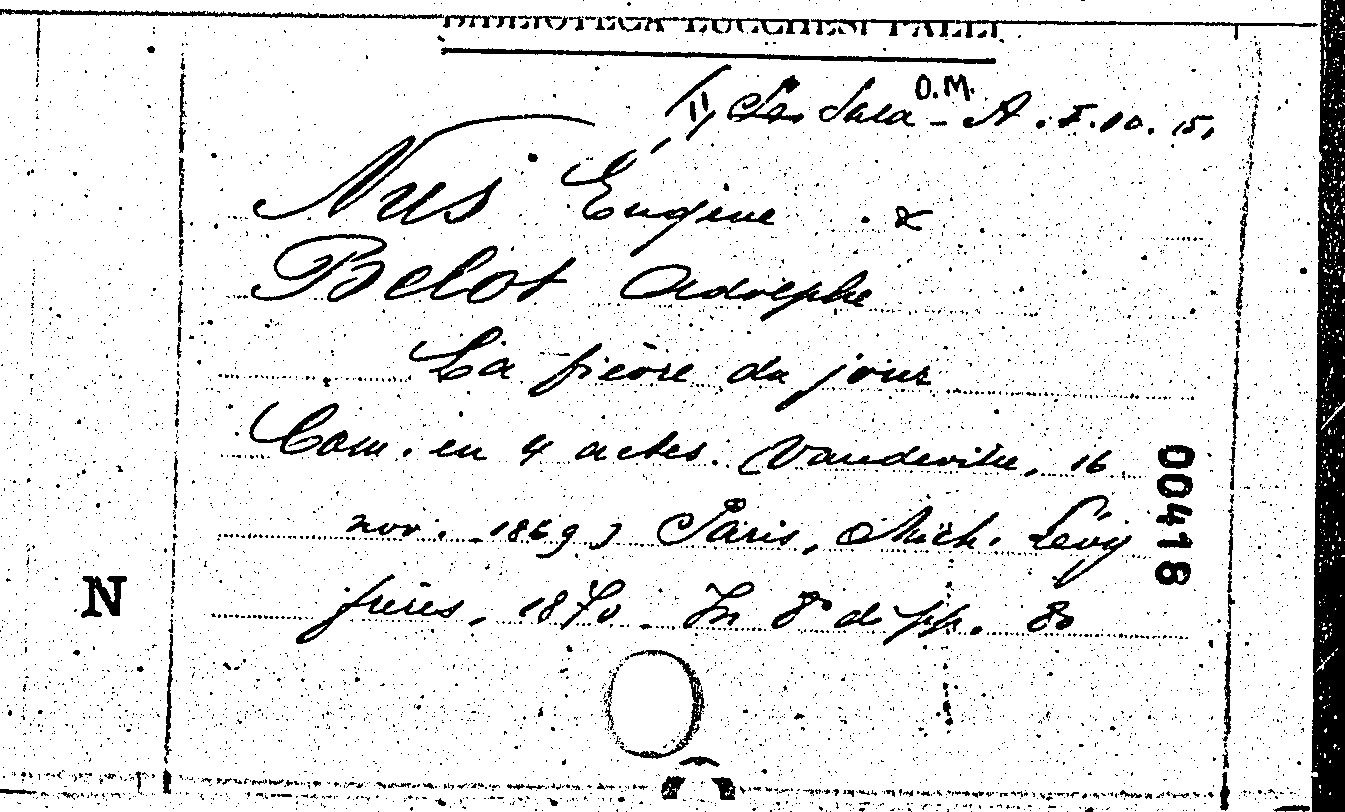 BIBLIOTECA LUCCHESI PALLI
O.M.
Sala - A. I. 10. 15,
Nus Eugène &
Belot Adolphe
La fièvre du jour
Com. en 4 actes. (Vaudeville, 16
nov. 1869) Paris, Mich. Lévy
frères, 1870. In 8° di pp. 80
00418
N